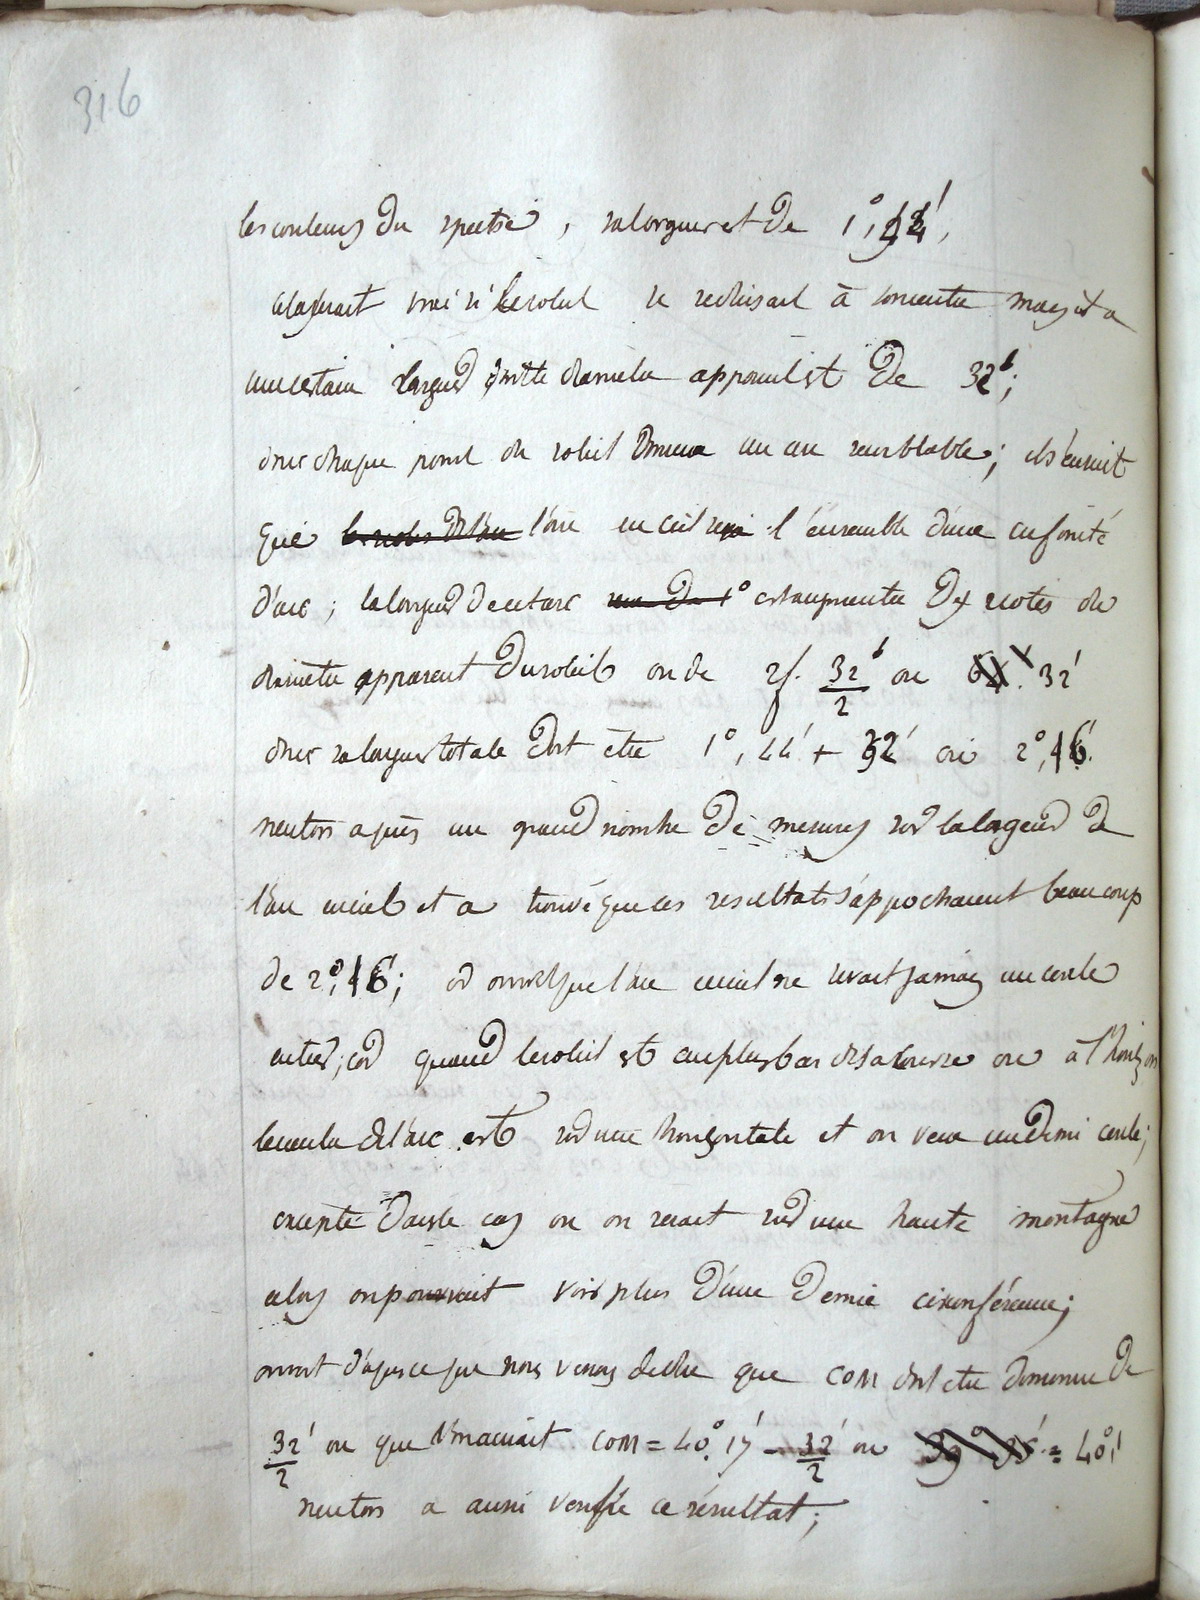 316
les couleurs du spectre, sa largeur est de 1°, 44',
cela serait vrai si le soleil se reduisait à son centre mais il a
une certaine largeur; son diametre apparent est de 32';
donc chaque point du soleil donnera un arc semblable; il s'ensuit
que l'arc en ciel sera l'ensemble d'une infinité
d'arcs; la largeur de cet arc est augmentée des 2 cotés du
diametre apparent du soleil ou de 2f. 32'/2 ou 32'
donc sa largeur totale doit être 1°, 44' + 32' ou 2°, 16'.
neuton a pris un grand nombre de mesures sur la largeur de
l'arc en ciel et a trouvé que ces resultats s'approchaient beaucoup
de 2°, 16'; on voit que l'arc en ciel ne serait jamais un cercle
entier; car quand le soleil est au plus bas de sa course ou à l'horizon
le centre de l'arc est sur une horizontale et on verra un demi cercle;
excepté dans le cas ou on serait sur une haute montagne
alors on pourrait voir plus d'une demie circonférence;
on voit d'apres ce que nous venons de dire que COM doit etre diminué de
32'/2 ou que l'on aurait COM = 40°. 17' - 32'/2 ou = 40°1'
neuton a aussi verifié ce résultat;